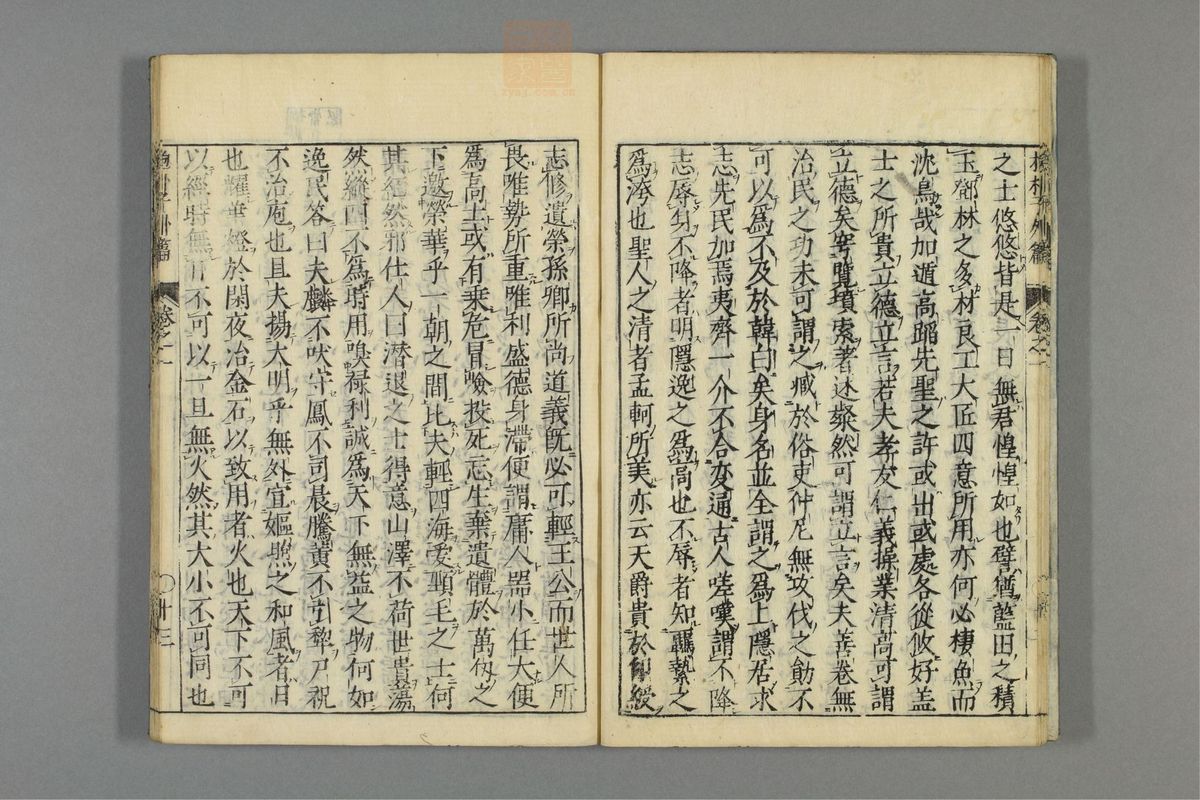 之士悠悠皆是一日無君惶惶如也譬猶藍田之積
玉鄧林之多材良工大匠四意所用亦何必棲魚而
沈鳥哉加遁高蹈先聖之許或出或處各從攸好盖
士之所貴立德立言若夫孝友仁義操業清高可謂
立德矣窮覽墳索著述粲然可謂立言矣夫善卷無
治民之功未可謂之減於俗吏仲尼無攻伐之勛不
可以爲不及於韓白矣身名並全謂之爲上隱居求
志先民加焉夷齊一介不合変通古人嗟嘆謂不降
志辱身不降者明隱逸之爲高也不辱者知羈縶之
爲洿也聖人之清者孟軻所美亦云天爵貴於印綬
志修遺榮孫卿所尚道義既必可輕王公而世人所
畏唯勢所重唯利盛德身滯便謂庸人噐小任大便
爲高士或有乗危冒嶮投死忘生棄遺體於萬仭之
下邀榮華乎一朝之間比夫輕四海愛脛毛之士何
其逈然邪仕人曰潜退之士得意山澤不荷世貴蕩
然縱四不爲時用嗅禄利誠爲天下無益之物何如
逸民荅曰夫麟不吠守鳳不司晨騰黃不引犂尸祝
不治庖也且夫揚大明乎無外宣嫗煦之和風者日
也耀華燈於閑夜冶金石以致用者火也天下不可
以經時無日不可以一旦無火然其大小不可同也
抱朴子外篇
卷之一
抱朴子外篇
卷之一
〇卄三
zysj.com.cn